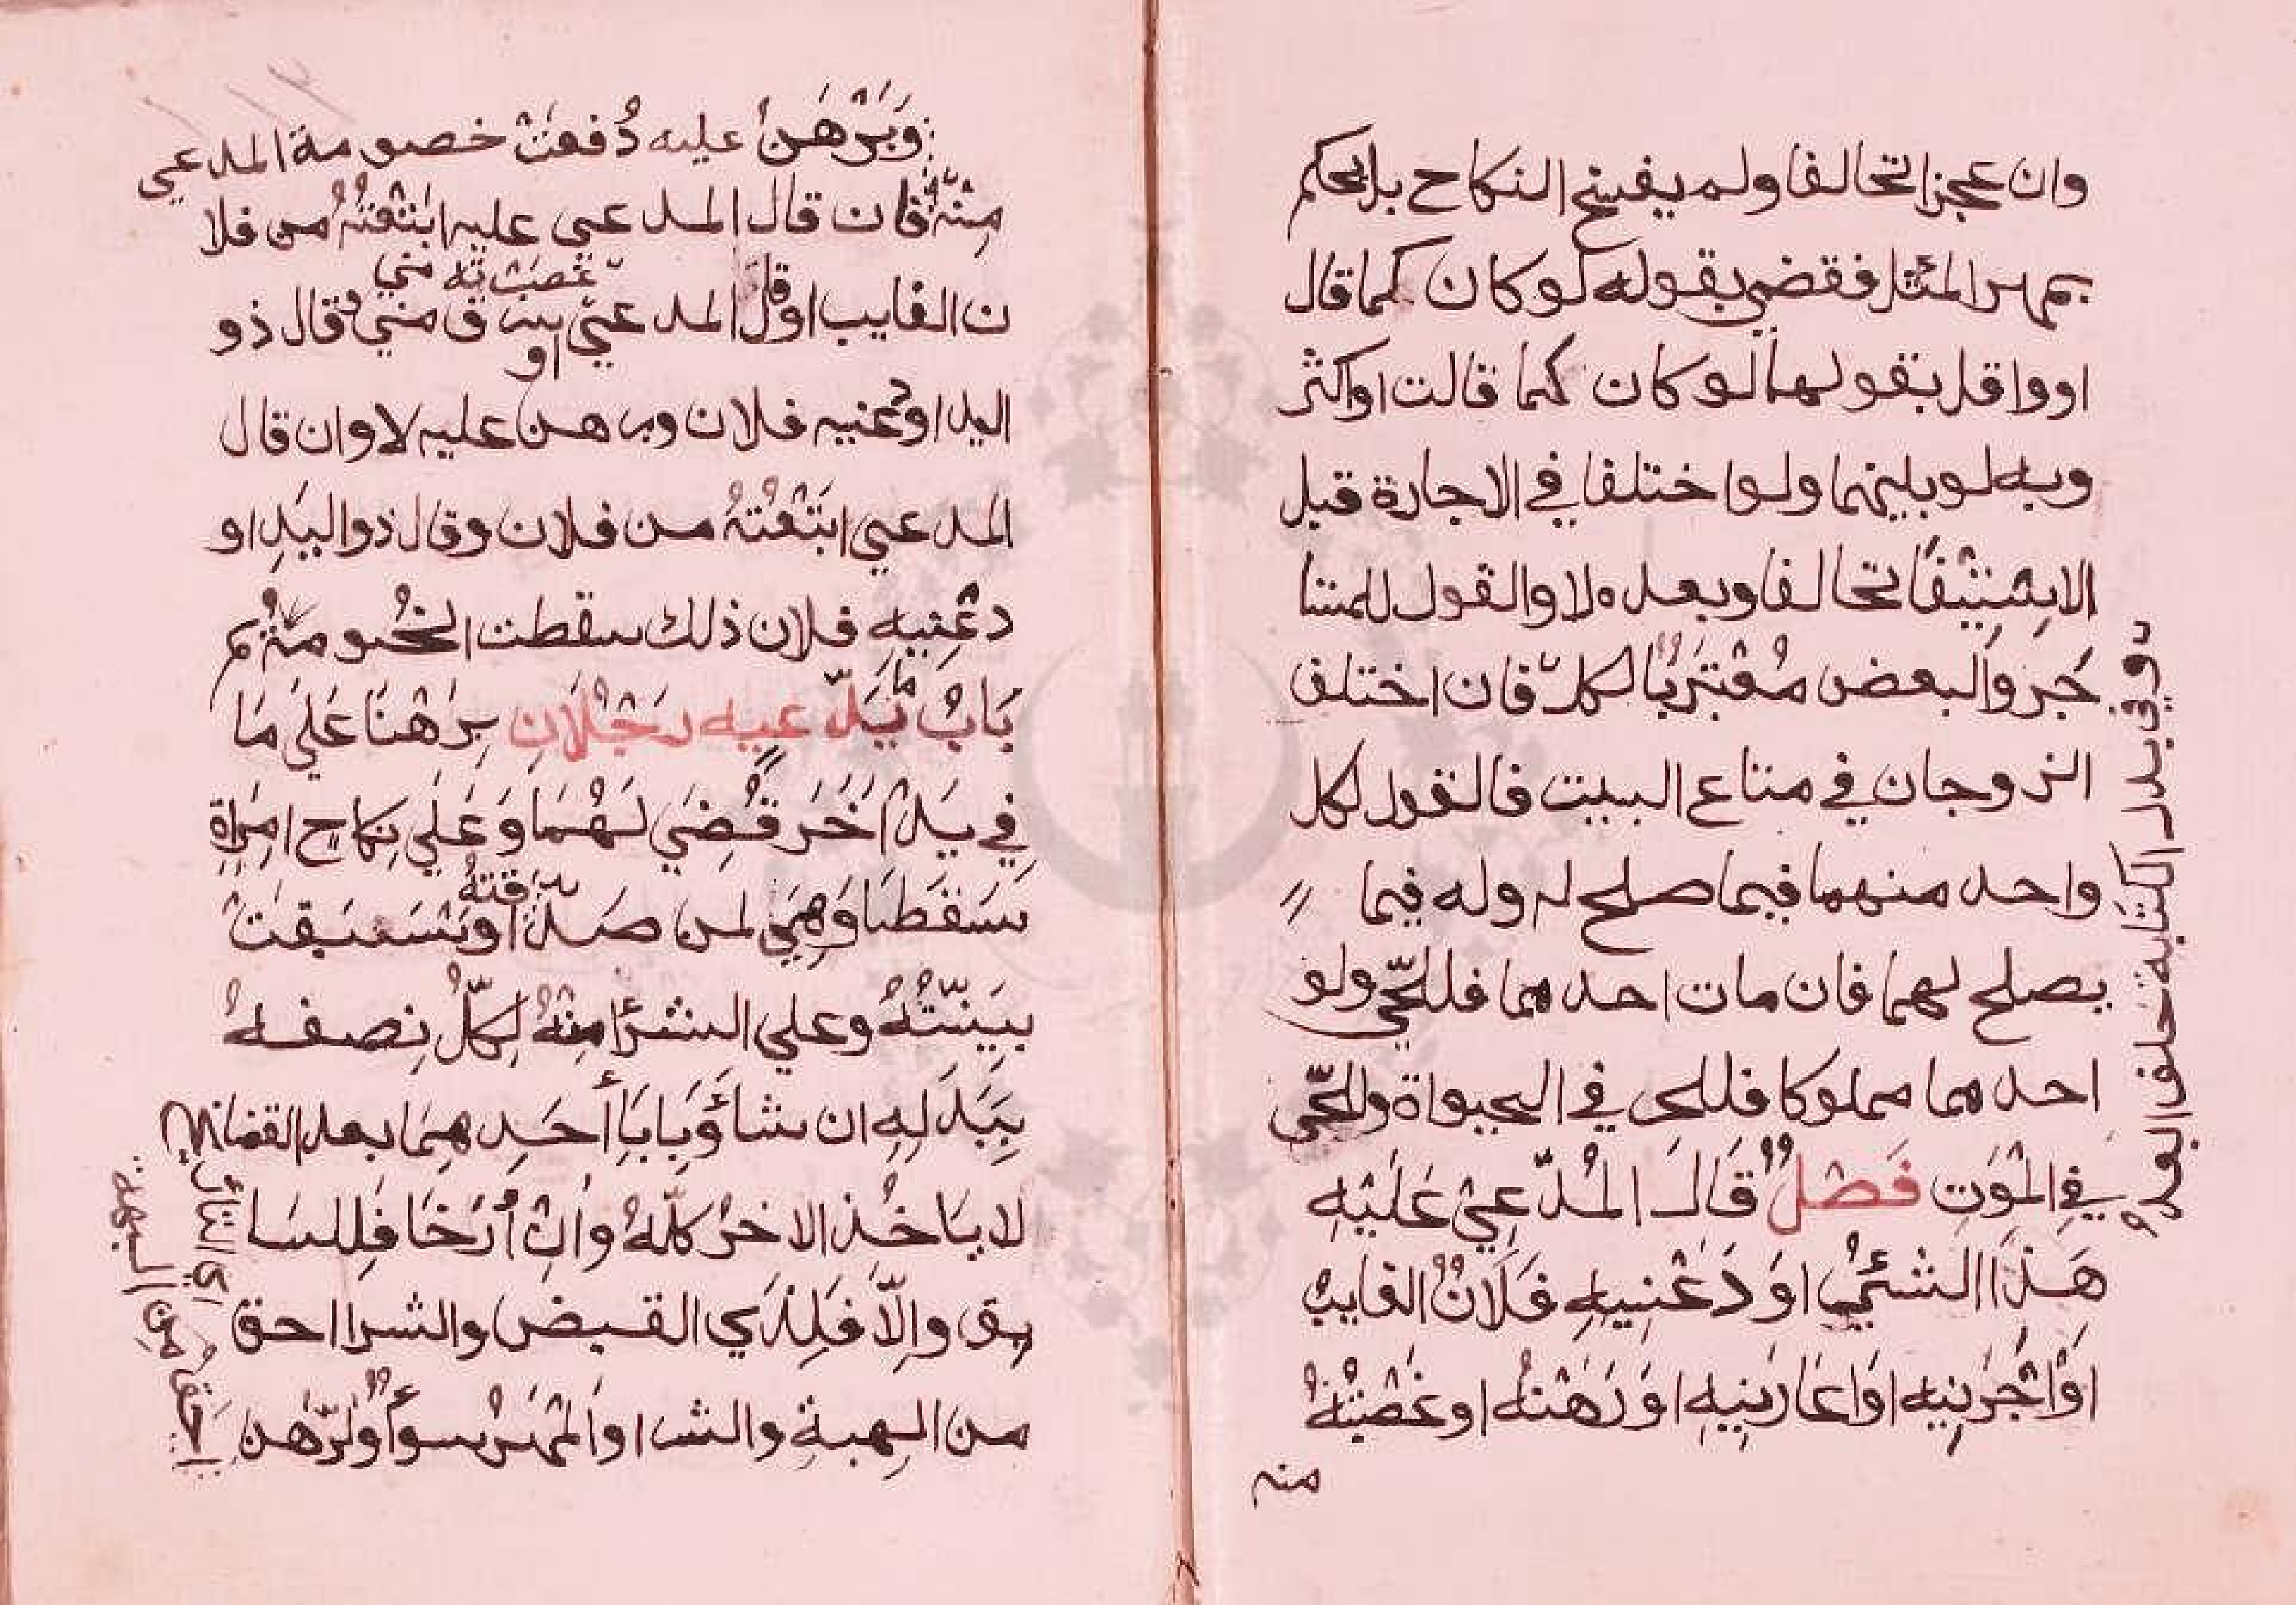 وان عجزا تحالفا ولم يفسخ النكاح بل يحكم
بمهر المثل فقضي بقوله لو كان كما قال
او واقل بقولها لو كان كما قالت او اكثر
وبه لو بينهما ولو اختلفا في الاجارة قبل
الاستيفا تحالفا وبعده لا والقول للمستا
جر والبعض معتبر بالكل فان اختلف
الزوجان في متاع البيت فالقول لكل
واحد منهما فيما صلح له وله فيما
يصلح لهما فان مات احدهما فللحي ولو
احدهما مملوكا فللحر في الحيواة وللحي
في الموت فَصْلٌ قَالَ المُدَّعِي عَلَيْهِ
هَذَا الشئي اَوْدَعْنِيهِ فَلَانٌ الغايب
اَوْ اَجَرَنِيهِ اَوْ اَعَارَنِيهِ اَوْ رَهَنَهُ او غَصَبْتُهُ
منه
وفي بدل الكتابة خلف العبد
وَبَرْهَنُ عليه دُفعَتْ خصومة المدعي
مِنْهُ فان قال المدعي عليه ابْتَعْتُهُ من فلا
ن الغايب او قال المدعي سرق مني وقال ذو
غصبته مني
او
اليد اودعنيه فلان وبرهن عليه لا وان قال
المدعي ابْتَعْتُهُ من فلان وقال ذو اليَدِ او
دعْنِيهِ فلان ذلك سقطت الخصومة
بَابُ ما يَدَّعيه رَجُلَانِ بَرْهَنَا عَلَي مَا
فِي يَدِ آخَرَ قُضِيَ لَهُمَا وَعَلَي نِكَاحِ امرَاةٍ
سَقَطَا وَهِيَ لمن صَدَّقتهُ اَوْ سَبَقَتْ
بَيِّنَتُهُ وعلي الشرا مِنْهُ لِكُلِّ نِصفهُ
بِبَدَلِهِ ان شا وَبِابَا أَحَدِهِمَا بعد القضا
لا يَاخُذ الاخرُ كلّهُ وان أرَّخَا فَلِلسَا
بق والّا فَلِذي القبض والشرا احق
من الهبةِ والشرا والمَهْرُ سوَاءٌ والرَّهن
احق من الهبة